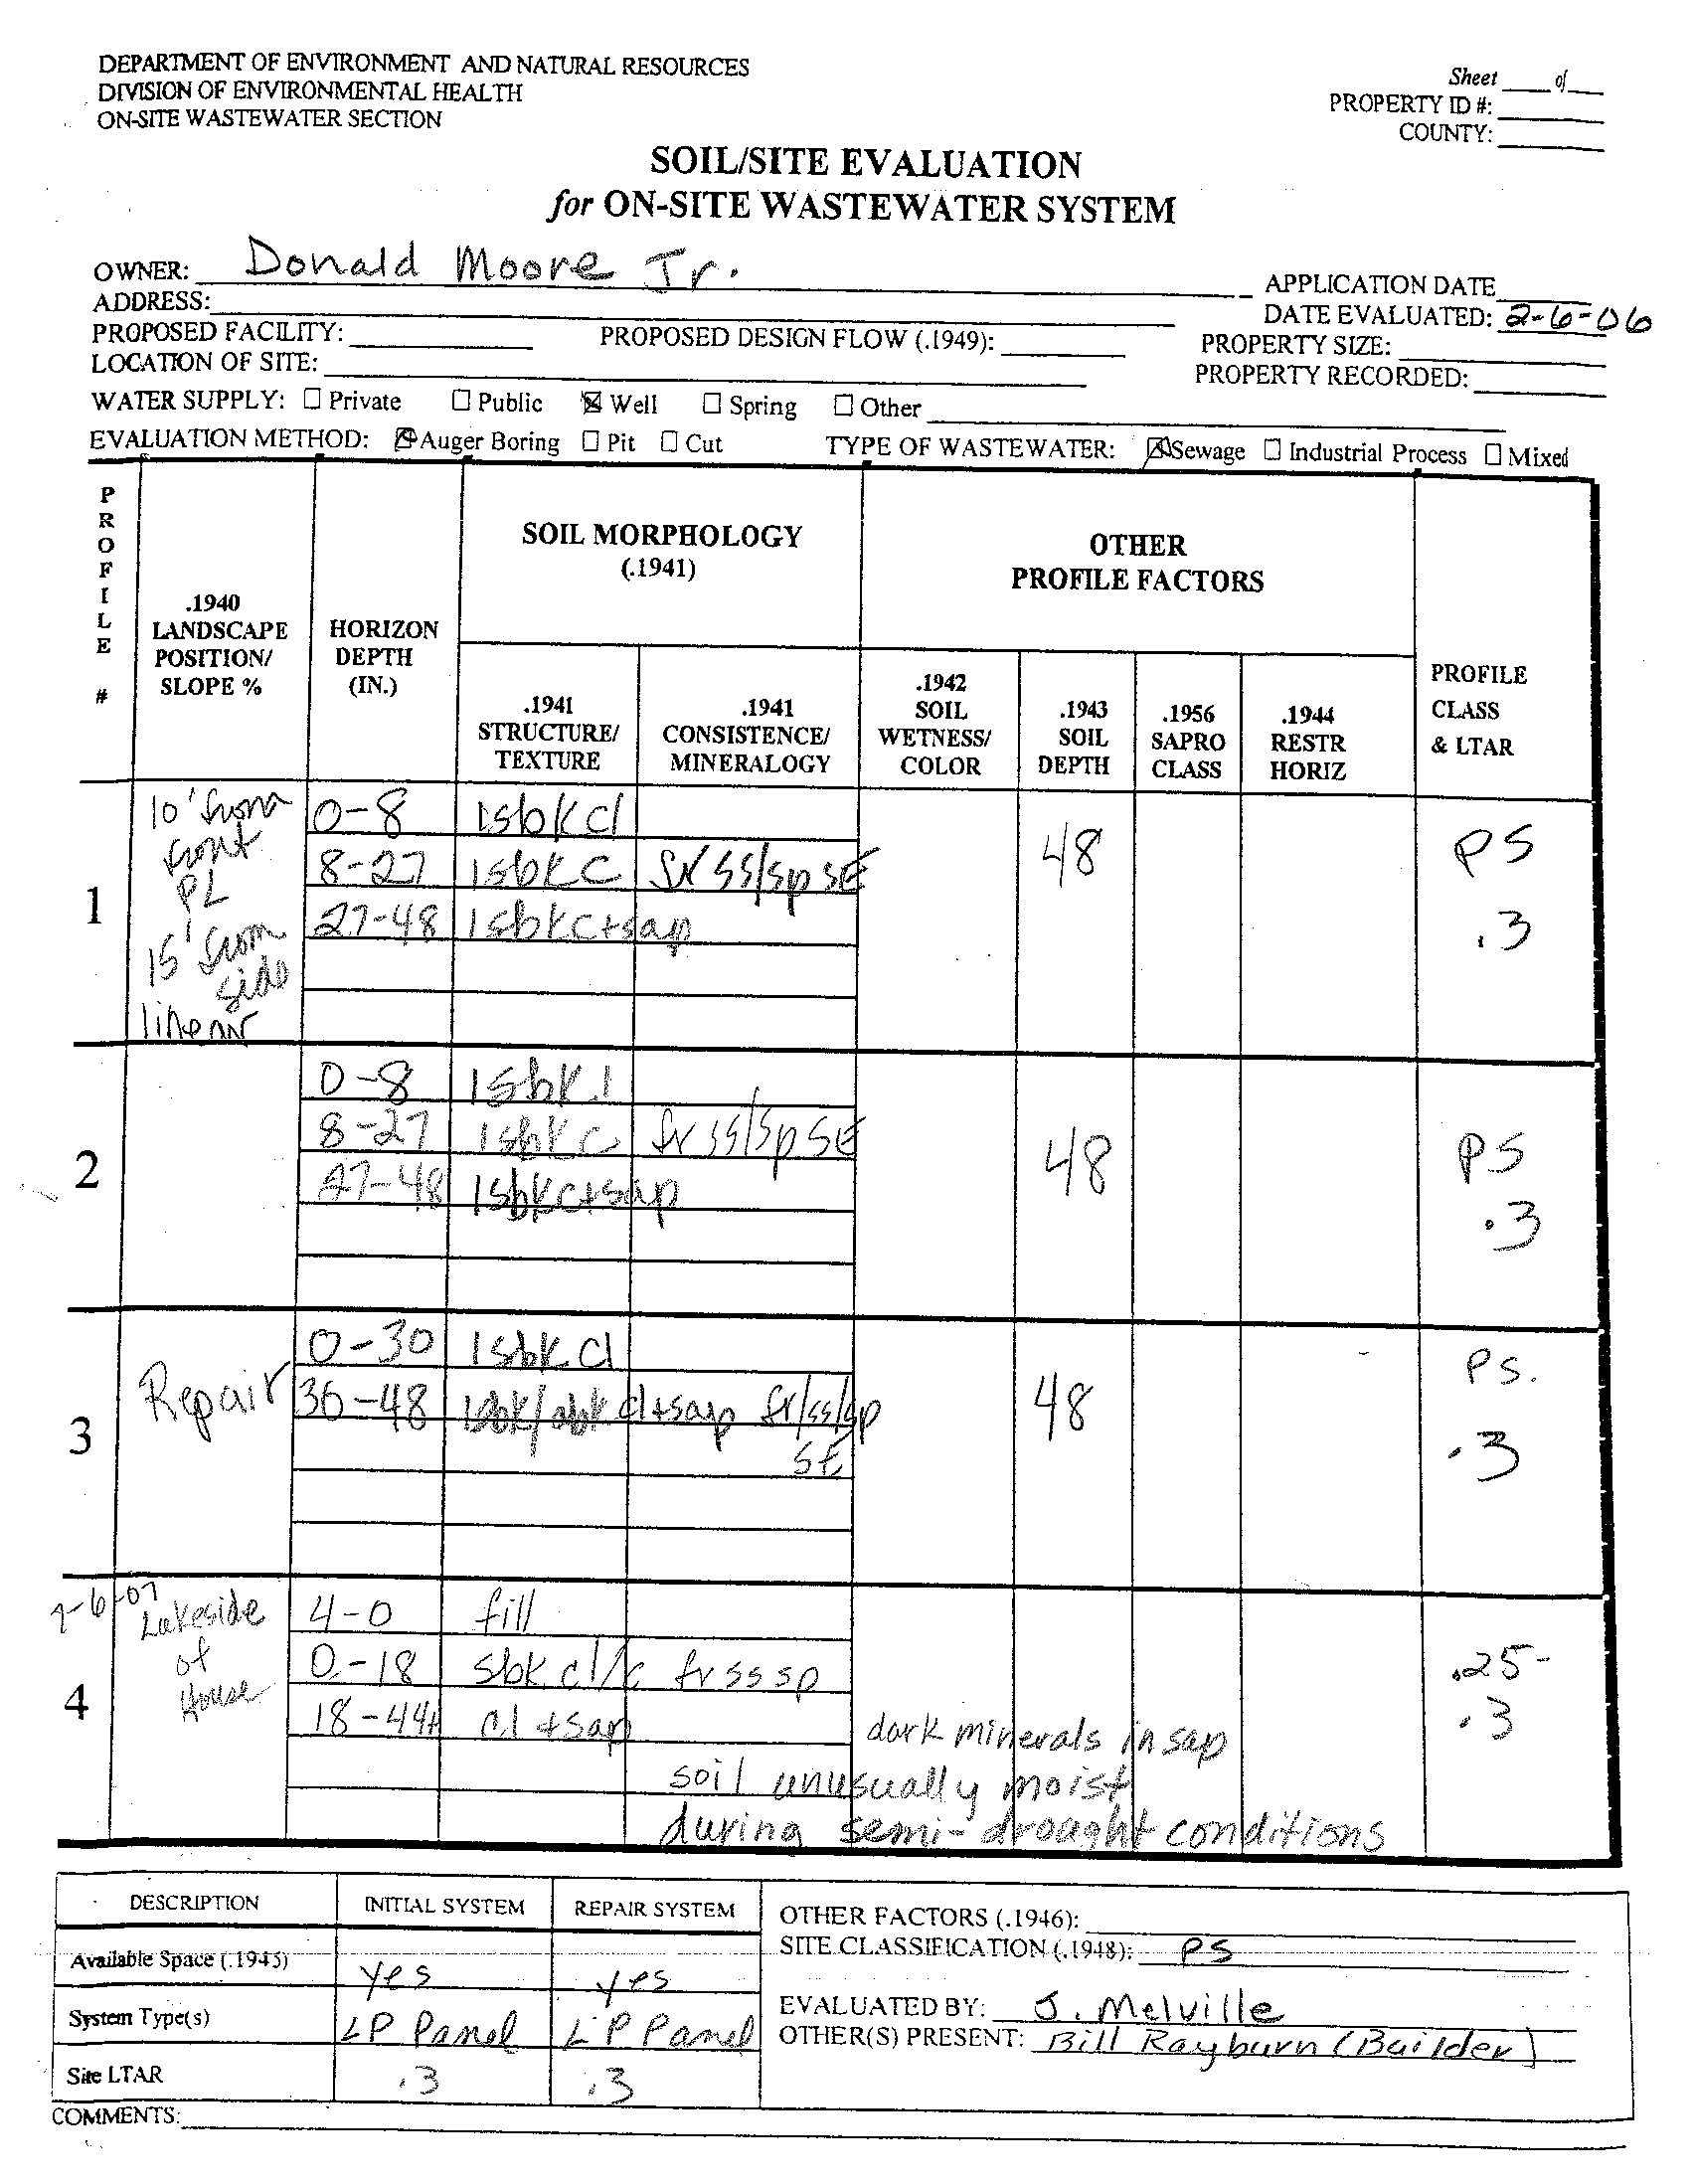 DEPARTMENT OF ENVIRONMENT AND NATURAL RESOURCES
DIVISION OF ENVIRONMENTAL HEALTH
ON-SITE WASTEWATER SECTION
Sheet ____ of ___
PROPERTY ID #:
COUNTY:
SOIL/SITE EVALUATION
for ON-SITE WASTEWATER SYSTEM
OWNER: Donald Moore Jr.
APPLICATION DATE
ADDRESS:
DATE EVALUATED: 2-6-06
PROPOSED FACILITY: PROPOSED DESIGN FLOW (.1949): PROPERTY SIZE:
LOCATION OF SITE: PROPERTY RECORDED:
WATER SUPPLY: ☐ Private ☐ Public ☒ Well ☐ Spring ☐ Other
EVALUATION METHOD: ☒ Auger Boring ☐ Pit ☐ Cut TYPE OF WASTEWATER: ☒ Sewage ☐ Industrial Process ☐ Mixed
PROFILE #
.1940 LANDSCAPE POSITION/ SLOPE %
HORIZON DEPTH (IN.)
SOIL MORPHOLOGY (.1941)
.1941 STRUCTURE/ TEXTURE
.1941 CONSISTENCE/ MINERALOGY
OTHER PROFILE FACTORS
.1942 SOIL WETNESS/ COLOR
.1943 SOIL DEPTH
.1956 SAPRO CLASS
.1944 RESTR HORIZ
PROFILE CLASS & LTAR
1
10' from
front
PL
15' from
side
linear
0-8 1sbk cl
8-27 1sbk C fr ss/sp SE
27-48 1sbk c+sap
48
PS
.3
2
0-8 1sbk l
8-27 1sbk c fr ss/sp SE
27-48 1sbk c+sap
48
PS
.3
3
Repair
0-30 1sbk cl
30-48 1sbk/abk cl+sap fr/ss/sp
SE
48
PS.
.3
4
-6-07
Lakeside
of
House
4-0 fill
0-18 sbk cl/c fr ss sp
18-44+ cl +sap
dark minerals in sap
soil unusually moist
during semi-drought conditions
.25-
.3
DESCRIPTION INITIAL SYSTEM REPAIR SYSTEM
Available Space (.1945) yes yes
System Type(s) LP Panel LP Panel
Site LTAR .3 .3
OTHER FACTORS (.1946):
SITE CLASSIFICATION (.1948): PS
EVALUATED BY: J. Melville
OTHER(S) PRESENT: Bill Rayburn (Builder)
COMMENTS: